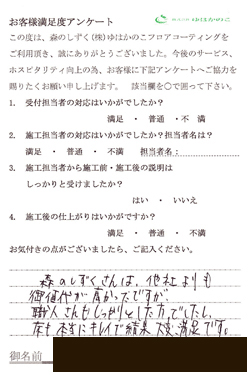 お客様満足度アンケート
ゆはかのこ
この度は、森のしずく(株)ゆはかのこフロアコーティングを
ご利用頂き、誠にありがとうございました。今後のサービス、
ホスピタリティ向上の為、お客様に下記アンケートへご協力を
賜りたくお願い申し上げます。 該当欄を○で囲って下さい。
1. 受付担当者の対応はいかがでしたか?
満足 ・ 普通 ・ 不満
2. 施工担当者の対応はいかがでしたか?担当者名は?
満足 ・ 普通 ・ 不満 担当者名:
3. 施工担当者から施工前・施工後の説明は
しっかりと受けましたか?
はい ・ いいえ
4. 施工後の仕上がりはいかがですか?
満足 ・ 普通 ・ 不満
お気付きの点がございましたら、ご記入ください。
森のしずくさんは、他社よりも
御値段が高かったですが、
職人さんもしっかりとした方でしたし、
床も本当にキレイで結果大変満足です。
御名前